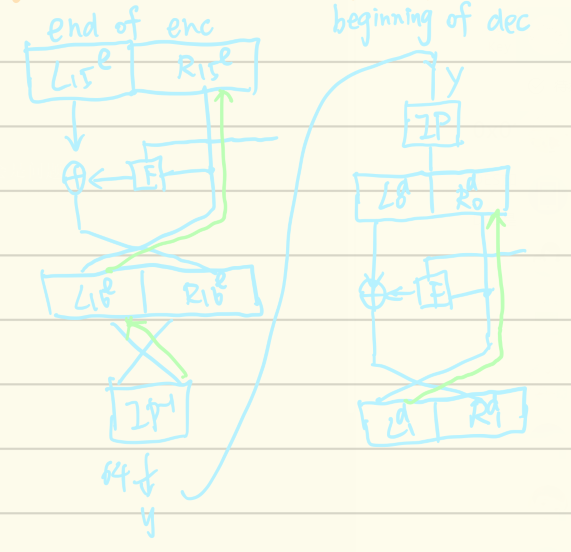 end of enc
L15^e R15^e
F
L16^e R16^e
IP^-1
64
y
beginning of dec
y
IP
L0^d R0^d
F
L1^d R1^d